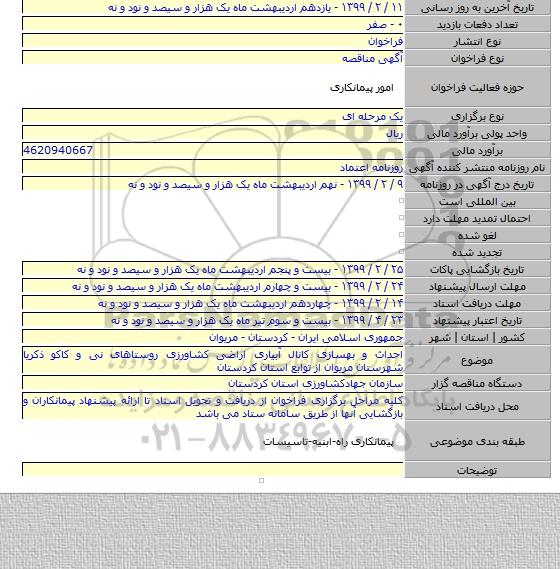 تاریخ آخرین به روز رسانی ۱۱ / ۲ / ۱۳۹۹ - یازدهم اردیبهشت ماه یک هزار و سیصد و نود و نه
تعداد دفعات بازدید ۰ - صفر
نوع انتشار فراخوان
نوع فراخوان آگهی مناقصه
حوزه فعالیت فراخوان امور پیمانکاری
نوع برگزاری یک مرحله ای
واحد پولی برآورد مالی ریال
برآورد مالی 4620940667
نام روزنامه منتشر کننده آگهی روزنامه اعتماد
تاریخ درج آگهی در روزنامه ۹ / ۲ / ۱۳۹۹ - نهم اردیبهشت ماه یک هزار و سیصد و نود و نه
بین المللی است
احتمال تمدید مهلت دارد
لغو شده
تجدید شده
تاریخ بازگشایی پاکات ۲۵ / ۲ / ۱۳۹۹ - بیست و پنجم اردیبهشت ماه یک هزار و سیصد و نود و نه
مهلت ارسال پیشنهاد ۲۴ / ۲ / ۱۳۹۹ - بیست و چهارم اردیبهشت ماه یک هزار و سیصد و نود و نه
مهلت دریافت اسناد ۱۴ / ۲ / ۱۳۹۹ - چهاردهم اردیبهشت ماه یک هزار و سیصد و نود و نه
تاریخ اعتبار پیشنهاد ۲۳ / ۴ / ۱۳۹۹ - بیست و سوم تیر ماه یک هزار و سیصد و نود و نه
کشور | استان | شهر جمهوری اسلامی ایران - کردستان - مریوان
موضوع احداث و بهسازی کانال آبیاری اراضی کشاورزی روستاهای نی و کاکو ذکریا
شهرستان مریوان از توابع استان کردستان
دستگاه مناقصه گزار سازمان جهادکشاورزی استان کردستان
محل دریافت اسناد کلیه مراحل برگزاری فراخوان از دریافت و تحویل اسناد تا ارائه پیشنهاد پیمانکاران و
بازگشایی آنها از طریق سامانه ستاد می باشد
طبقه بندی موضوعی پیمانکاری راه-ابنیه-تاسیسات
توضیحات
۰۲۱-۸۸۳۴۹۶۷۰-۵